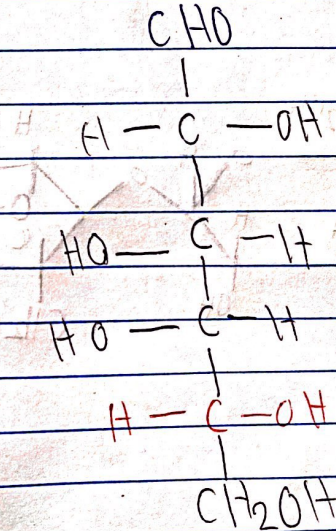 CHO
H — C — OH
HO — C — H
HO — C — H
H — C — OH
CH2OH